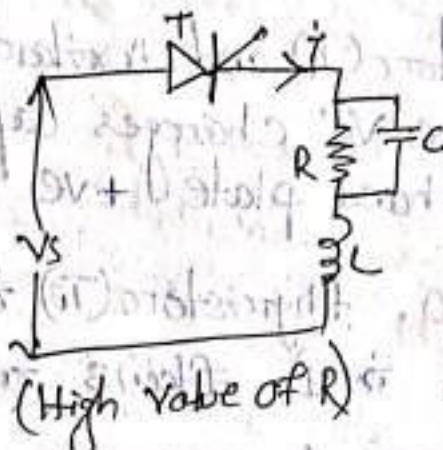 T
i
R
C
Vs
L
(High value of R)